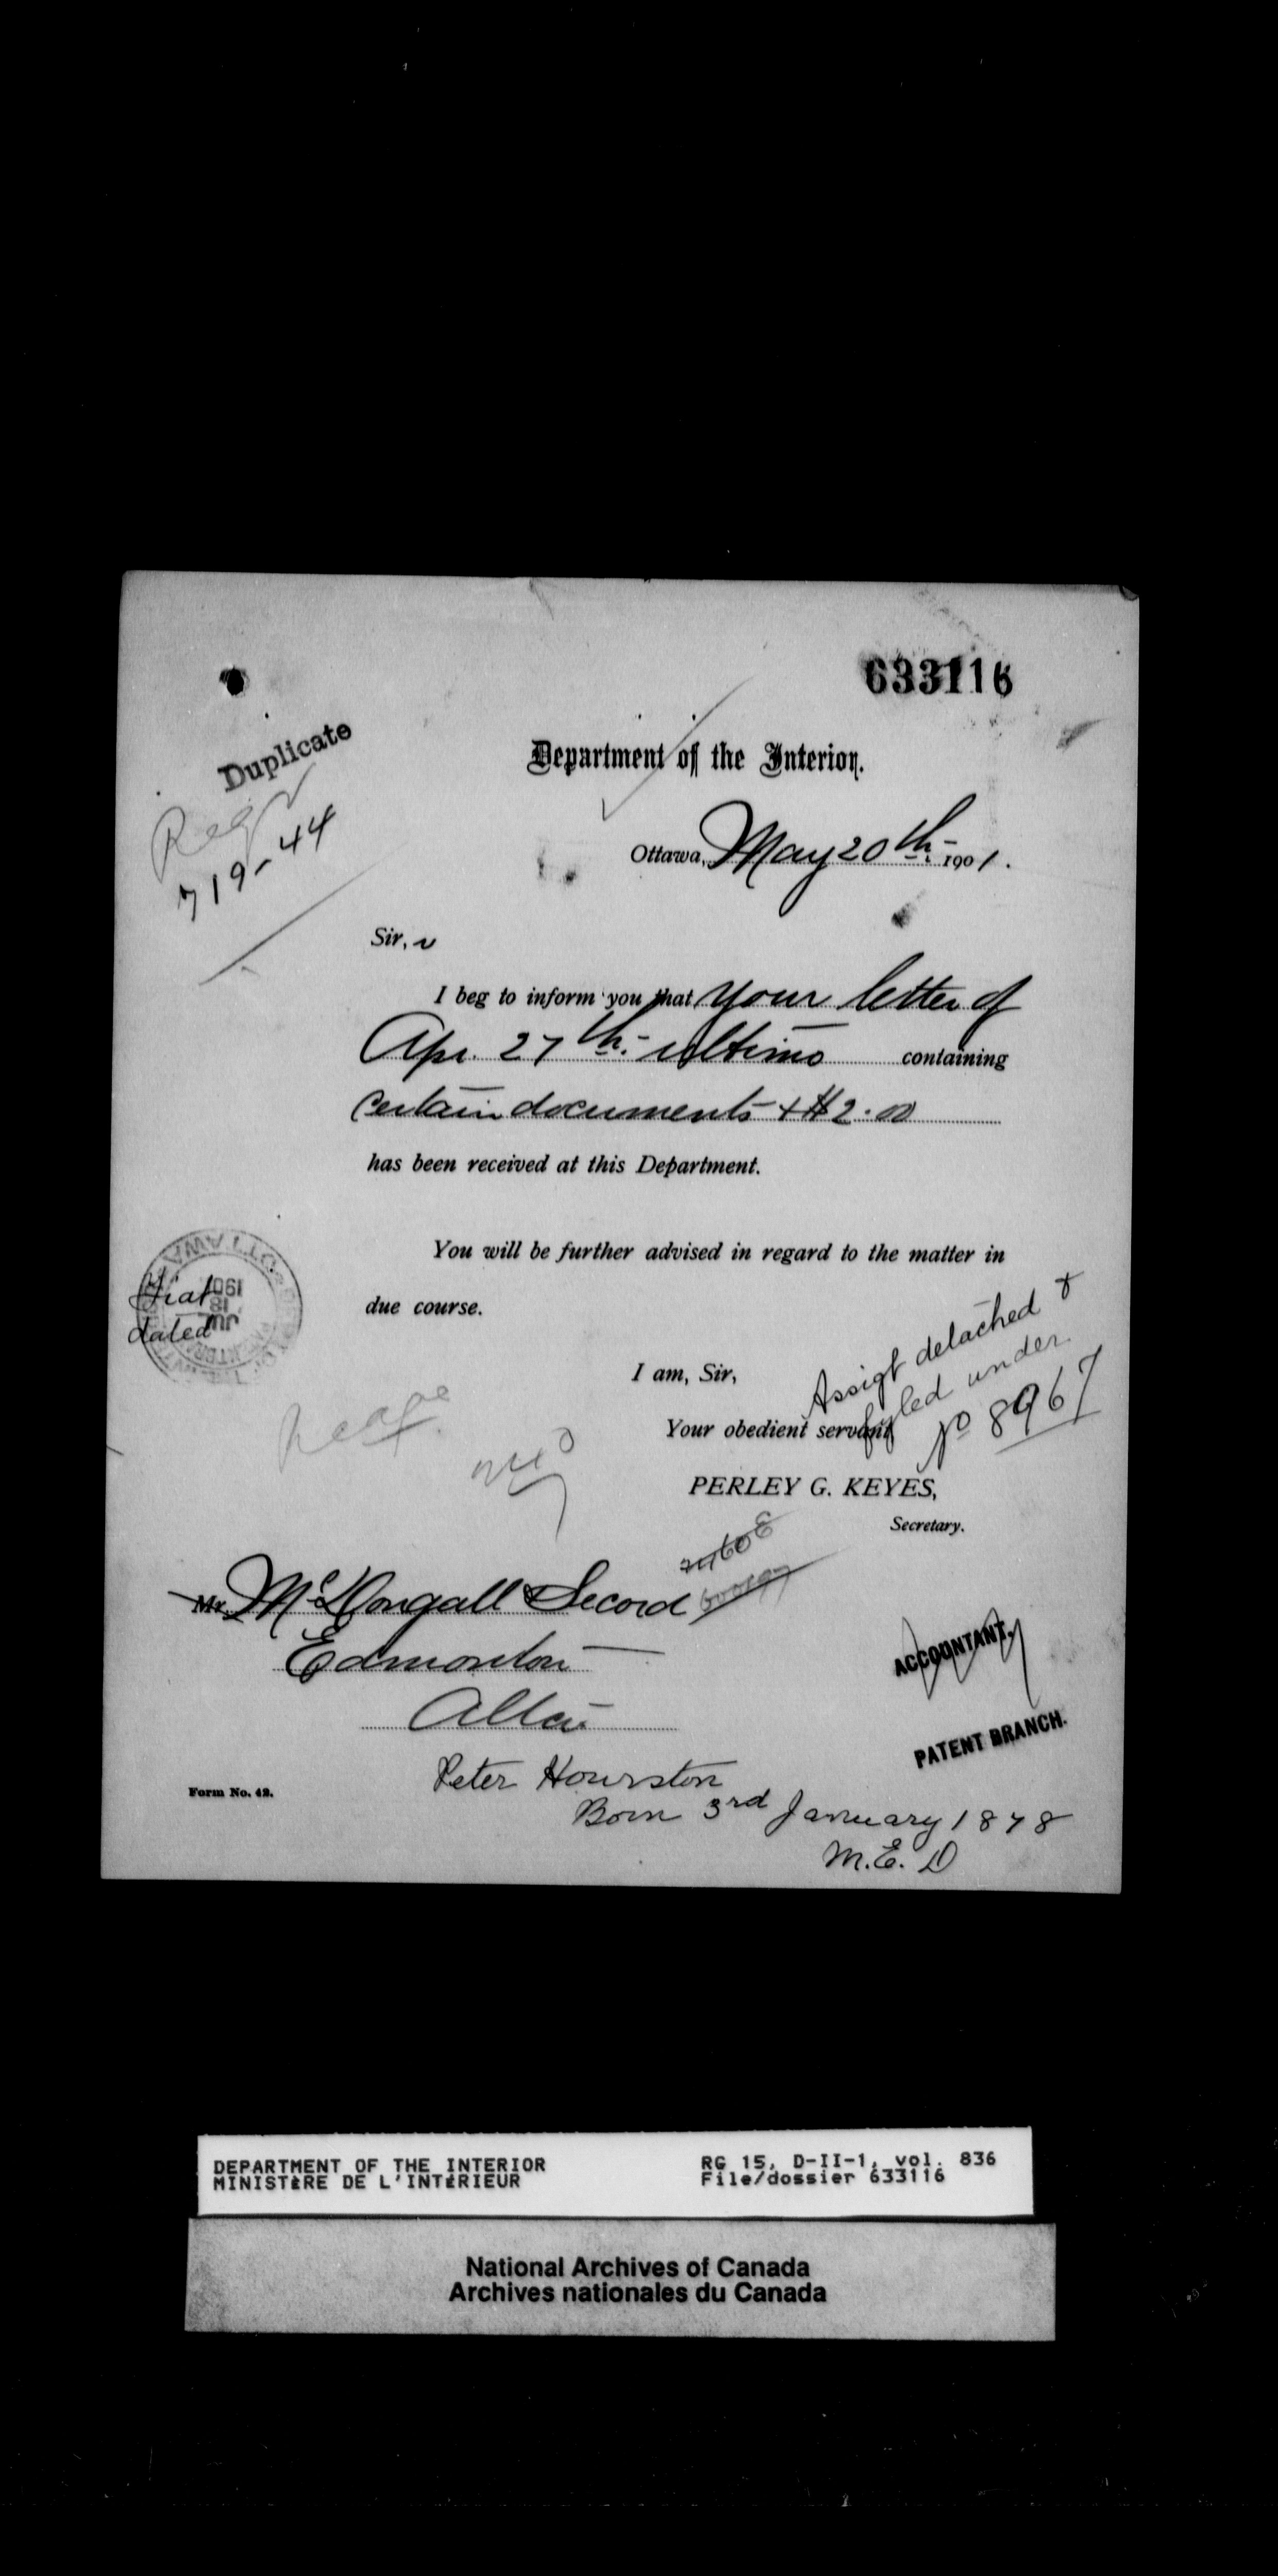 633116
Duplicate
Regr
719-44
Department of the Interior.
Ottawa, May 20th. 1901.
Sir,
I beg to inform you that your letter of
Apr. 27th. ultimo containing
certain documents + $2.00
has been received at this Department.
You will be further advised in regard to the matter in
due course.
OTTAWA
Fiat
dated
JUL 18 1901
I am, Sir,
Assigt detached &
fyled under
No 8967
Your obedient servant
PERLEY G. KEYES,
Secretary.
Mr. McDougall & Secord
Edmonton
Alta.
ACCOUNTANT.
PATENT BRANCH.
Form No. 42.
Peter Hourston
Born 3rd January 1878
M.E.D
DEPARTMENT OF THE INTERIOR RG 15, D-II-1, vol. 836
MINISTÈRE DE L'INTÉRIEUR File/dossier 633116
National Archives of Canada
Archives nationales du Canada